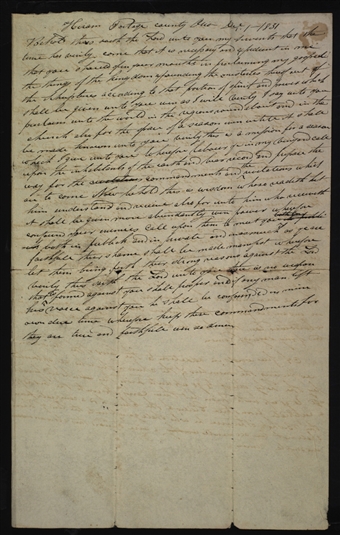 Hiram Portage County Ohio Dec 1 - 1831
Behold thus saith the Lord unto you my servants that the
time has verily come that it is necessary and expedient in me
that you should open your mouths in proclaiming my gospel
the things of the kingdom expounding the mysteries thereof out of
the scriptures according to that portion of spirit and power which
shall be given unto you even as I will verily I say unto you
proclaim unto the world in the regions round about and in the
church also for the space of a season even untill it shall
be made known unto you verily this is a mission for a season
which I give unto you wherefore labour ye in my vineyard call
upon the inhabitants of the earth and bear record and prepare the
way for the commandments and revelations which
are to come Now behold this is wisdom whoso readeth let
him understand and receive also for unto him who receiveth
it shall be given more abundantly even power wherefore
confound your enemies call upon them to meet you
both in publick and in private and inasmuch as ye are
faithfull their shame shall be made manifest wherefore
let them bring forth their strong reasons against the Lord
verily thus saith the Lord unto you there is no weapon
that is formed against you shall prosper and if any man lift
his voice against you he shall be confounded in mine
own due time wherefore keep these commandments for
they are true and faithfull even so amen